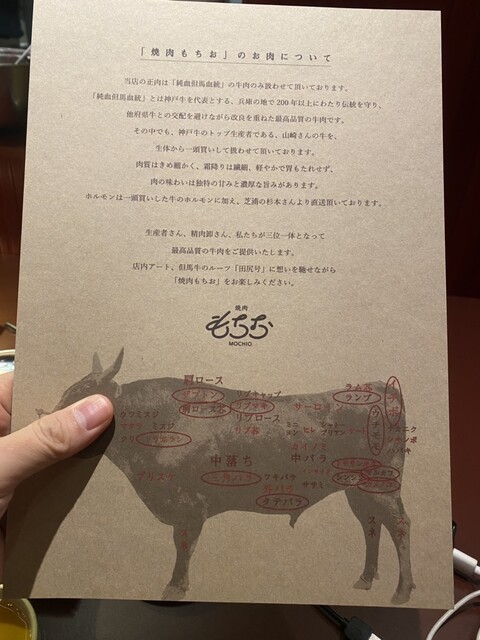 「焼肉もちお」のお肉について
当店の正肉は「純血但馬血統」の牛肉のみ扱わせて頂いております。
「純血但馬血統」とは神戸牛を代表とする、兵庫の地で200年以上にわたり伝統を守り、
他府県牛との交配を避けながら改良を重ねた最高品質の牛肉です。
その中でも、神戸牛のトップ生産者である、山崎さんの牛を、
生体から一頭買いして扱わせて頂いております。
肉質はきめ細かく、霜降りは繊細、軽やかで胃もたれせず、
肉の味わいは独特の甘みと濃厚な旨みがあります。
ホルモンは一頭買いした牛のホルモンに加え、芝浦の杉本さんより直送頂いております。
生産者さん、精肉卸さん、私たちが三位一体となって
最高品質の牛肉をご提供いたします。
店内アート、但馬牛のルーツ「田尻号」に想いを馳せながら
「焼肉もちお」をお楽しみください。
焼肉
もちお
MOCHIO
肩ロース
ザブトン
肩ロース芯
リブキャップ
リブマキ
リブロース
リブ芯
サーロイン
ヒレ
カイノミ
ラム芯
ランプ
イチボ
ウチモモ
シキンボ
ハバキ
トウガラシ
マクラ
ミスジ
クリ
ブリスケ
中落ち
三角バラ
中バラ
フキバラ
タテバラ
ササミ
スネ
スネ
スネ